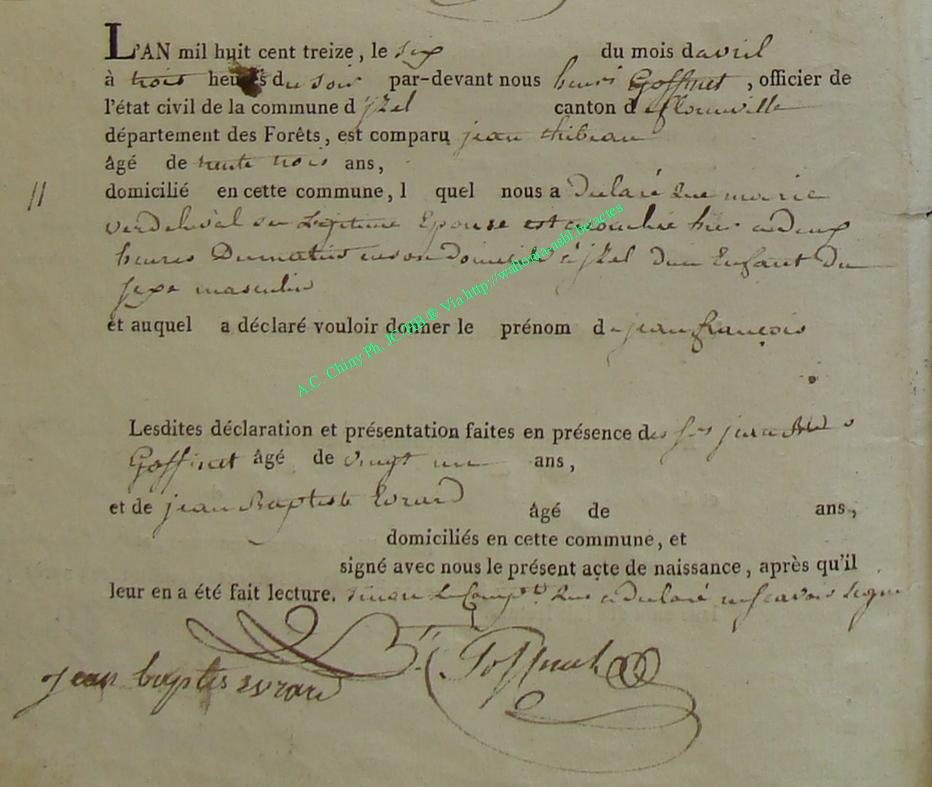 L'AN mil huit cent treize, le six du mois davril
à trois heures du soir par-devant nous henri Goffinet, officier de
l'état civil de la commune d'jzel canton de florenville
département des Forêts, est comparu jean thibeau
âgé de trente trois ans,
domicilié en cette commune, l quel nous a declaré que marie
// verdeleval sa legitime Epouse est acouchée hier a deux
heures Dumatin en son domicile a jzel d'un Enfant du
sexe masculin
et auquel a déclaré vouloir donner le prénom de jean françois
A.C. Chiny Ph. JCHM @ Via http://wallonia-asbl.be/actes
Lesdites déclaration et présentation faites en présence des jean
Goffinet âgé de vingt un ans,
et de jean Baptiste Evrard âgé de ans,
domiciliés en cette commune, et
signé avec nous le présent acte de naissance, après qu'il
leur en a été fait lecture. sinon le Comp.t que a declaré ne scavoir signe
jean baptis evrard Goffinet